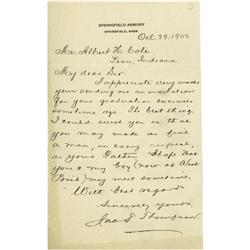 SPRINGFIELD ARMORY
SPRINGFIELD, MASS.
Oct. 29, 1902
Mr. Albert H. Cole
Peru, Indiana
My dear Sir
I appreciate very much
your sending me an invitation
for your graduation exercises
sometime ago. The best thing
I could wish you is that
you may make as fine
a man, in every respect,
as your Father. Hope that
you & my boy (now at West
Point) may meet sometime.
With best regards
Sincerely Yours,
Jno. T. Thompson